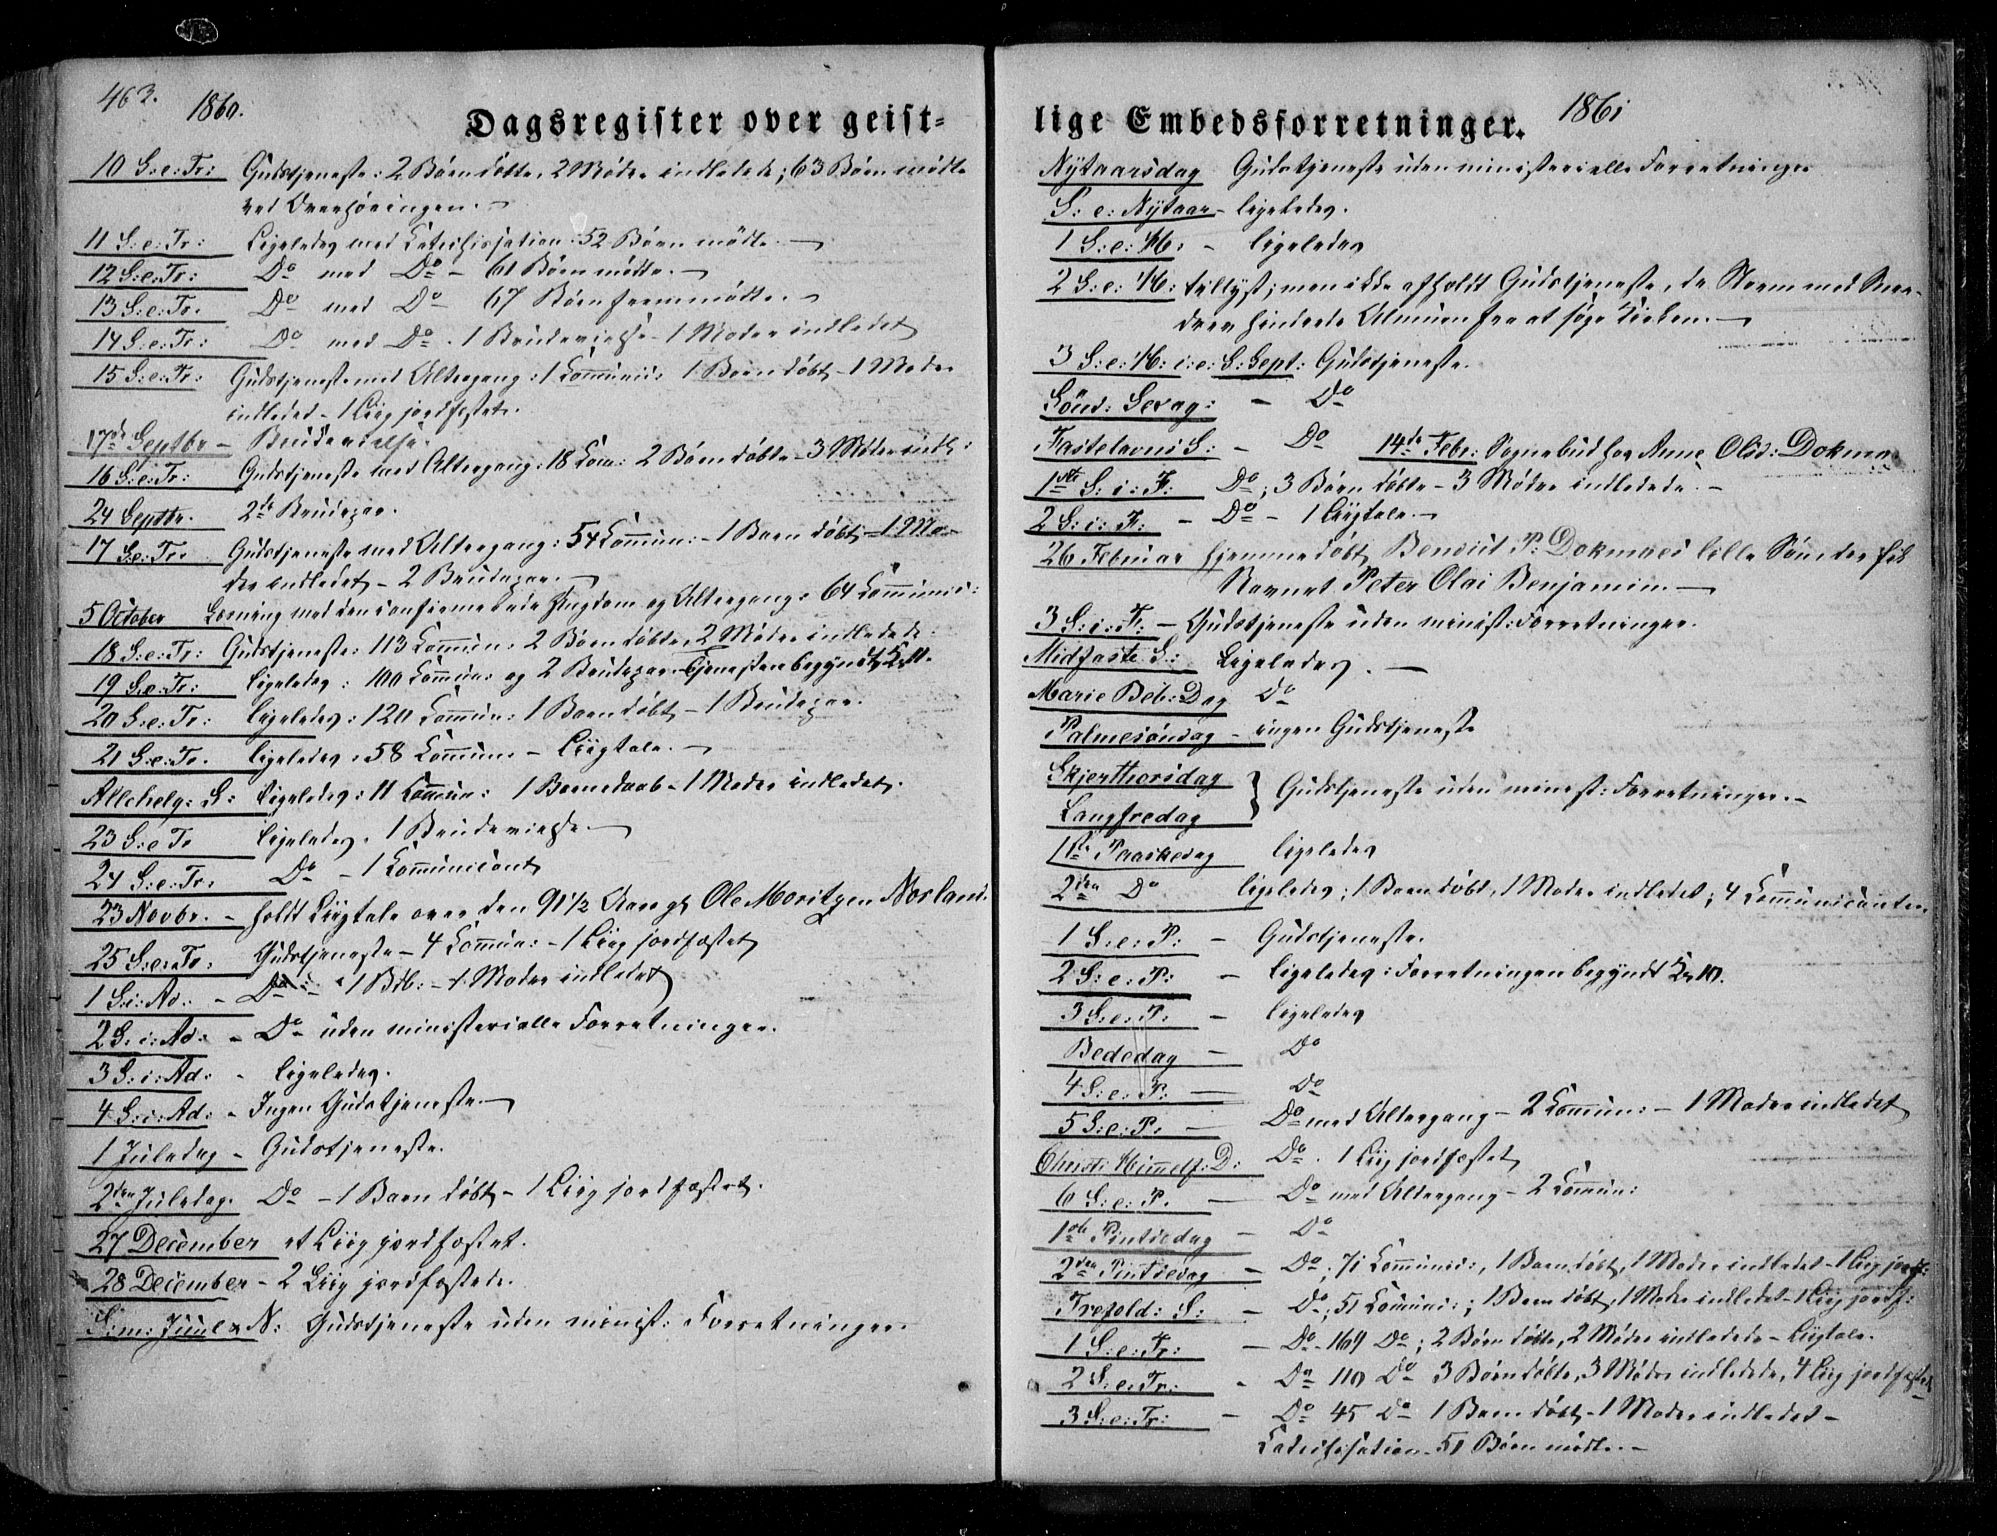 463.
1860.
Dagsregister over geist=
10 S:e:Tr: Gudstjeneste: 2 Børn døbte, 2 Mødre indledede; 63 Børn mødte
ved Overhøringen. –
11 S:e:Tr: Ligeledes med Catechisation: 52 Børn mødte. –
12 S:e:Tr: Do med Do – 61 Børn mødte. –
13 S:e:Tr. Do med Do 67 Børn fremmødte. –
14 S:e:Tr: Do med Do. 1 Brudevielse – 1 Moder indledet
15 S:e:Tr: Gudstjeneste med Altergang: 1 Communic: 1 Barn døbt – 1 Moder
indledet – 1 Liig jordfæstet.
17de Septbr – Brudevielse.
16 S:e:Tr: Gudstjeneste med Altergang: 18 Com: 2 Børn døbte – 3 Mødre indl:
24 Septbr. 2de Brudepar.
17 S:e:Tr: Gudstjeneste med Altergang: 54 Commun: – 1 Barn døbt – 1 Mo-
der indledet – 2 Brudepar. –
5 October Læsning med den confirmerede Ungdom og Altergang: 64 Communic:
18 S:e:Tr: Gudstjeneste: 113 Commun: 2 Børn døbte, 2 Mødre indledede.
19 S:e:Tr: Ligeledes: 100 Commun: og 2 Brudepar. Tjenesten begyndt Kl. 11.
20 S:e:Tr: Ligeledes: 120 Commun: 1 Barn døbt – 1 Brudepar.
21 S:e:Tr. Ligeledes: 58 Commun: – Liigtale. –
Allehelg: S: Ligeledes: 11 Commun: 1 Barnedaab – 1 Moder indledet.
23 S:e Tr Ligeledes. 1 Brudevielse. –
24 S:e:Tr: Do – 1 Communicant
23 Novbr. – holdt Liigtale over den 91 1/2 Aar gl. Ole Moritzen Norland.
25 S:e:Tr: Gudstjeneste – 4 Commun: – 1 Liig jordfæstet
1 S:i:Ad: – Do – 1 Bdb: – 1 Moder indledet
2 S:i:Ad: – Do uden ministerielle Forretninger.
3 S:i:Ad: – Ligeledes.
4 S:i:Ad: – Ingen Gudstjeneste. –
1 Juledag – Gudstjeneste.
2den Juledag. Do – 1 Barn døbt – 1 Liig jordfæstet.
27 December et Liig jordfæstet.
28 December – 2 Liig jordfæstede.
S:m: Juul & N: Gudstjeneste uden minist: Forretninger.
lige Embedsforretninger.
1861
Nytaarsdag Gudstjeneste uden ministerielle Forretninger
S: e: Nytaar – Ligeledes.
1 S:e: H: – Ligeledes
2 S:e: H: tillyst, men ikke afholdt Gudstjeneste, da Storm med Snee-
drev hindrede Almuen fra at søge Kirken. –
3 S:e: H: i:e: S: Sept: Gudstjeneste.
Sönd: Sexag: – Do
Fastelavns S: – Do 14de Febr: Sognebud hos Anne Olsd: Dokmo
1ste S: i: F: Do; 3 Børn døbte – 3 Mødre indledede. –
2 S: i: F: – Do – 1 Liigtale. –
26 Februar hjemmedøbt Bendict P: Dokmoes lille Søn der fik
Navnet Peter Olai Benjamin. –
3 S: i: F: – Gudstjeneste uden minist: Forretninger.
Midfaste S: Ligeledes. –
Marie Beb: Dag Do
Palmesöndag – ingen Gudstjeneste
Skjerthorsdag
Langfredag } Gudstjeneste uden minist: Forretninger. –
1ste Paaskedag Ligeledes
2den Do Ligeledes; 1 Barn døbt, 1 Moder indledet; 4 Communicanter.
1 S:e: P: – Gudstjeneste.
2 S:e: P: – Ligeledes: Forretningen begyndt Kl. 10.
3 S:e: P: – Ligeledes
Bededag – Do
4 S:e: P: – Do
5 S:e: P: – Do med Altergang – 2 Commun: – 1 Moder indledet
Christi Himmelf: D: Do. 1 Liig jordfæstet
6 S:e: P. – Do med Altergang – 2 Commun:
1ste Pintsedag – Do
2den Pintsedag – Do; 71 Communic:, 1 Barn døbt, 1 Moder indledet – 1 Liig jordf:
Trefold: S: – Do; 51 Communi:; 1 Barn døbt, 1 Moder indledet – 1 Liig jordf:
1 S:e: Tr: – Do – 169 Do; 2 Børn døbte, 2 Mødre indledede – Liigtale.
2 S:e: Tr: – Do 110 Do 3 Børn døbte, 3 Mødre indledede, 4 Liig jordfæstet
3 S:e: Tr: – Do 45 Do 1 Barn døbt – 1 Moder indledet –
Catechisation – 51 Børn mødte. –